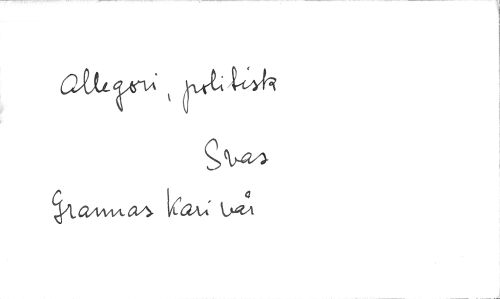 Allegori, politisk
Svas
Grannas Kari vår